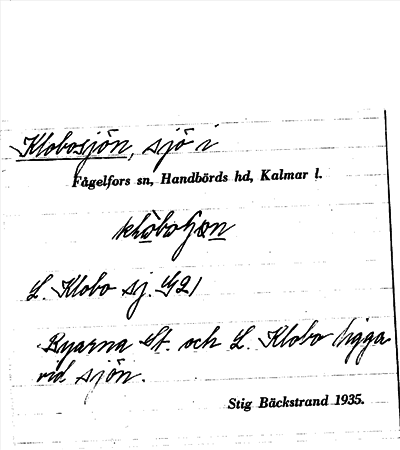 Klobosjön, sjö i
Fågelfors sn, Handbörds hd, Kalmar l.
L. Klobo sj. G21
Byarna St. och L. Klobo ligga
vid sjön.
Stig Bäckstrand 1935.